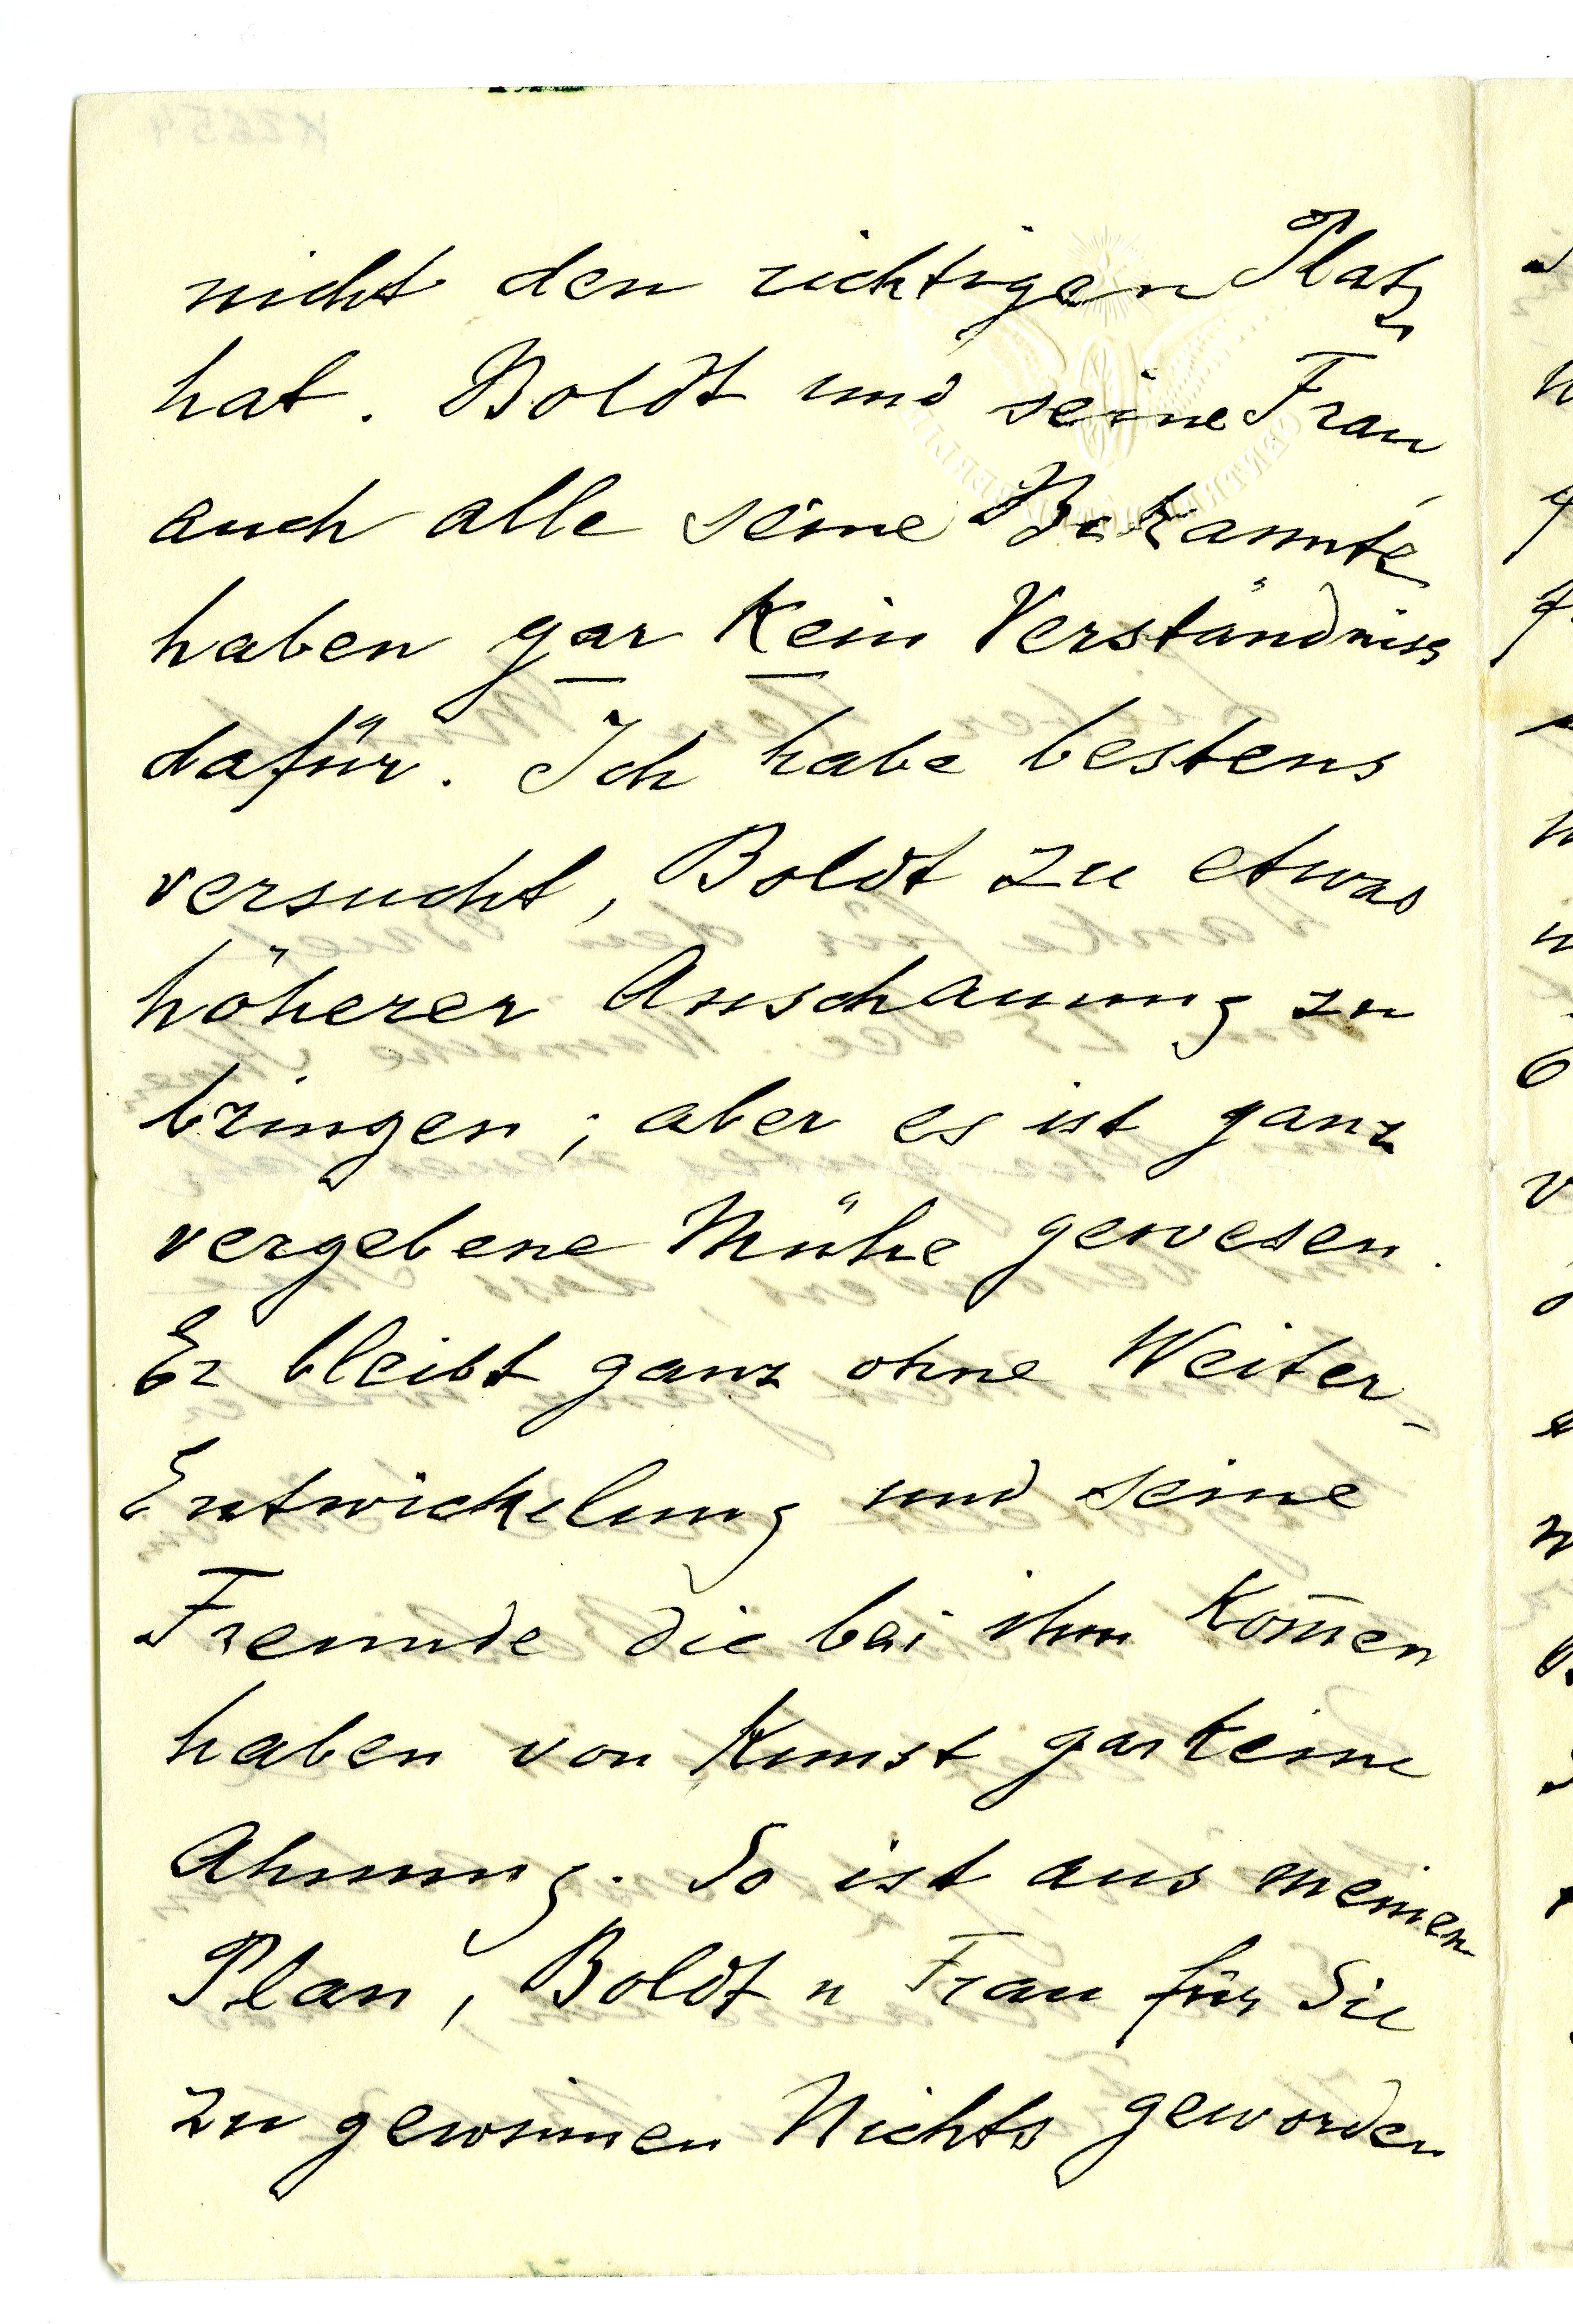 nicht den richtigen Platz
hat. Boldt und seine Frau,
auch alle seine Bekannte
haben gar kein Verständniss
dafür. Ich habe bestens
versucht, Boldt zu etwas
höherer Anschauung zu
bringen; aber es ist ganz
vergebene Mühe gewesen.
Er bleibt ganz ohne Weiter-
Entwickelung und seine
Freunde die bei ihm kom̄en
haben von Kunst gar keine
Ahnung. So ist aus meinen
Plan, Boldt u Frau für Sie
zu gewinnen Nichts geworden